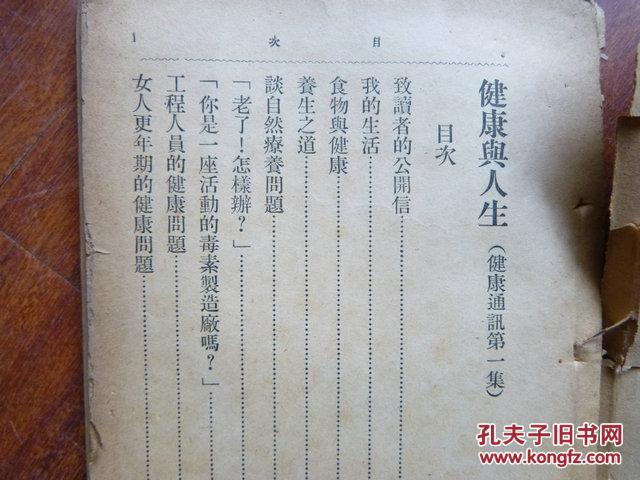 目次 1
健康與人生（健康通訊第一集）
目次
致讀者的公開信
我的生活
食物與健康
養生之道
談自然療養問題
「老了！怎樣辦？」
「你是一座活動的毒素製造廠嗎？」
工程人員的健康問題
女人更年期的健康問題
孔夫子旧书网
www.kongfz.com